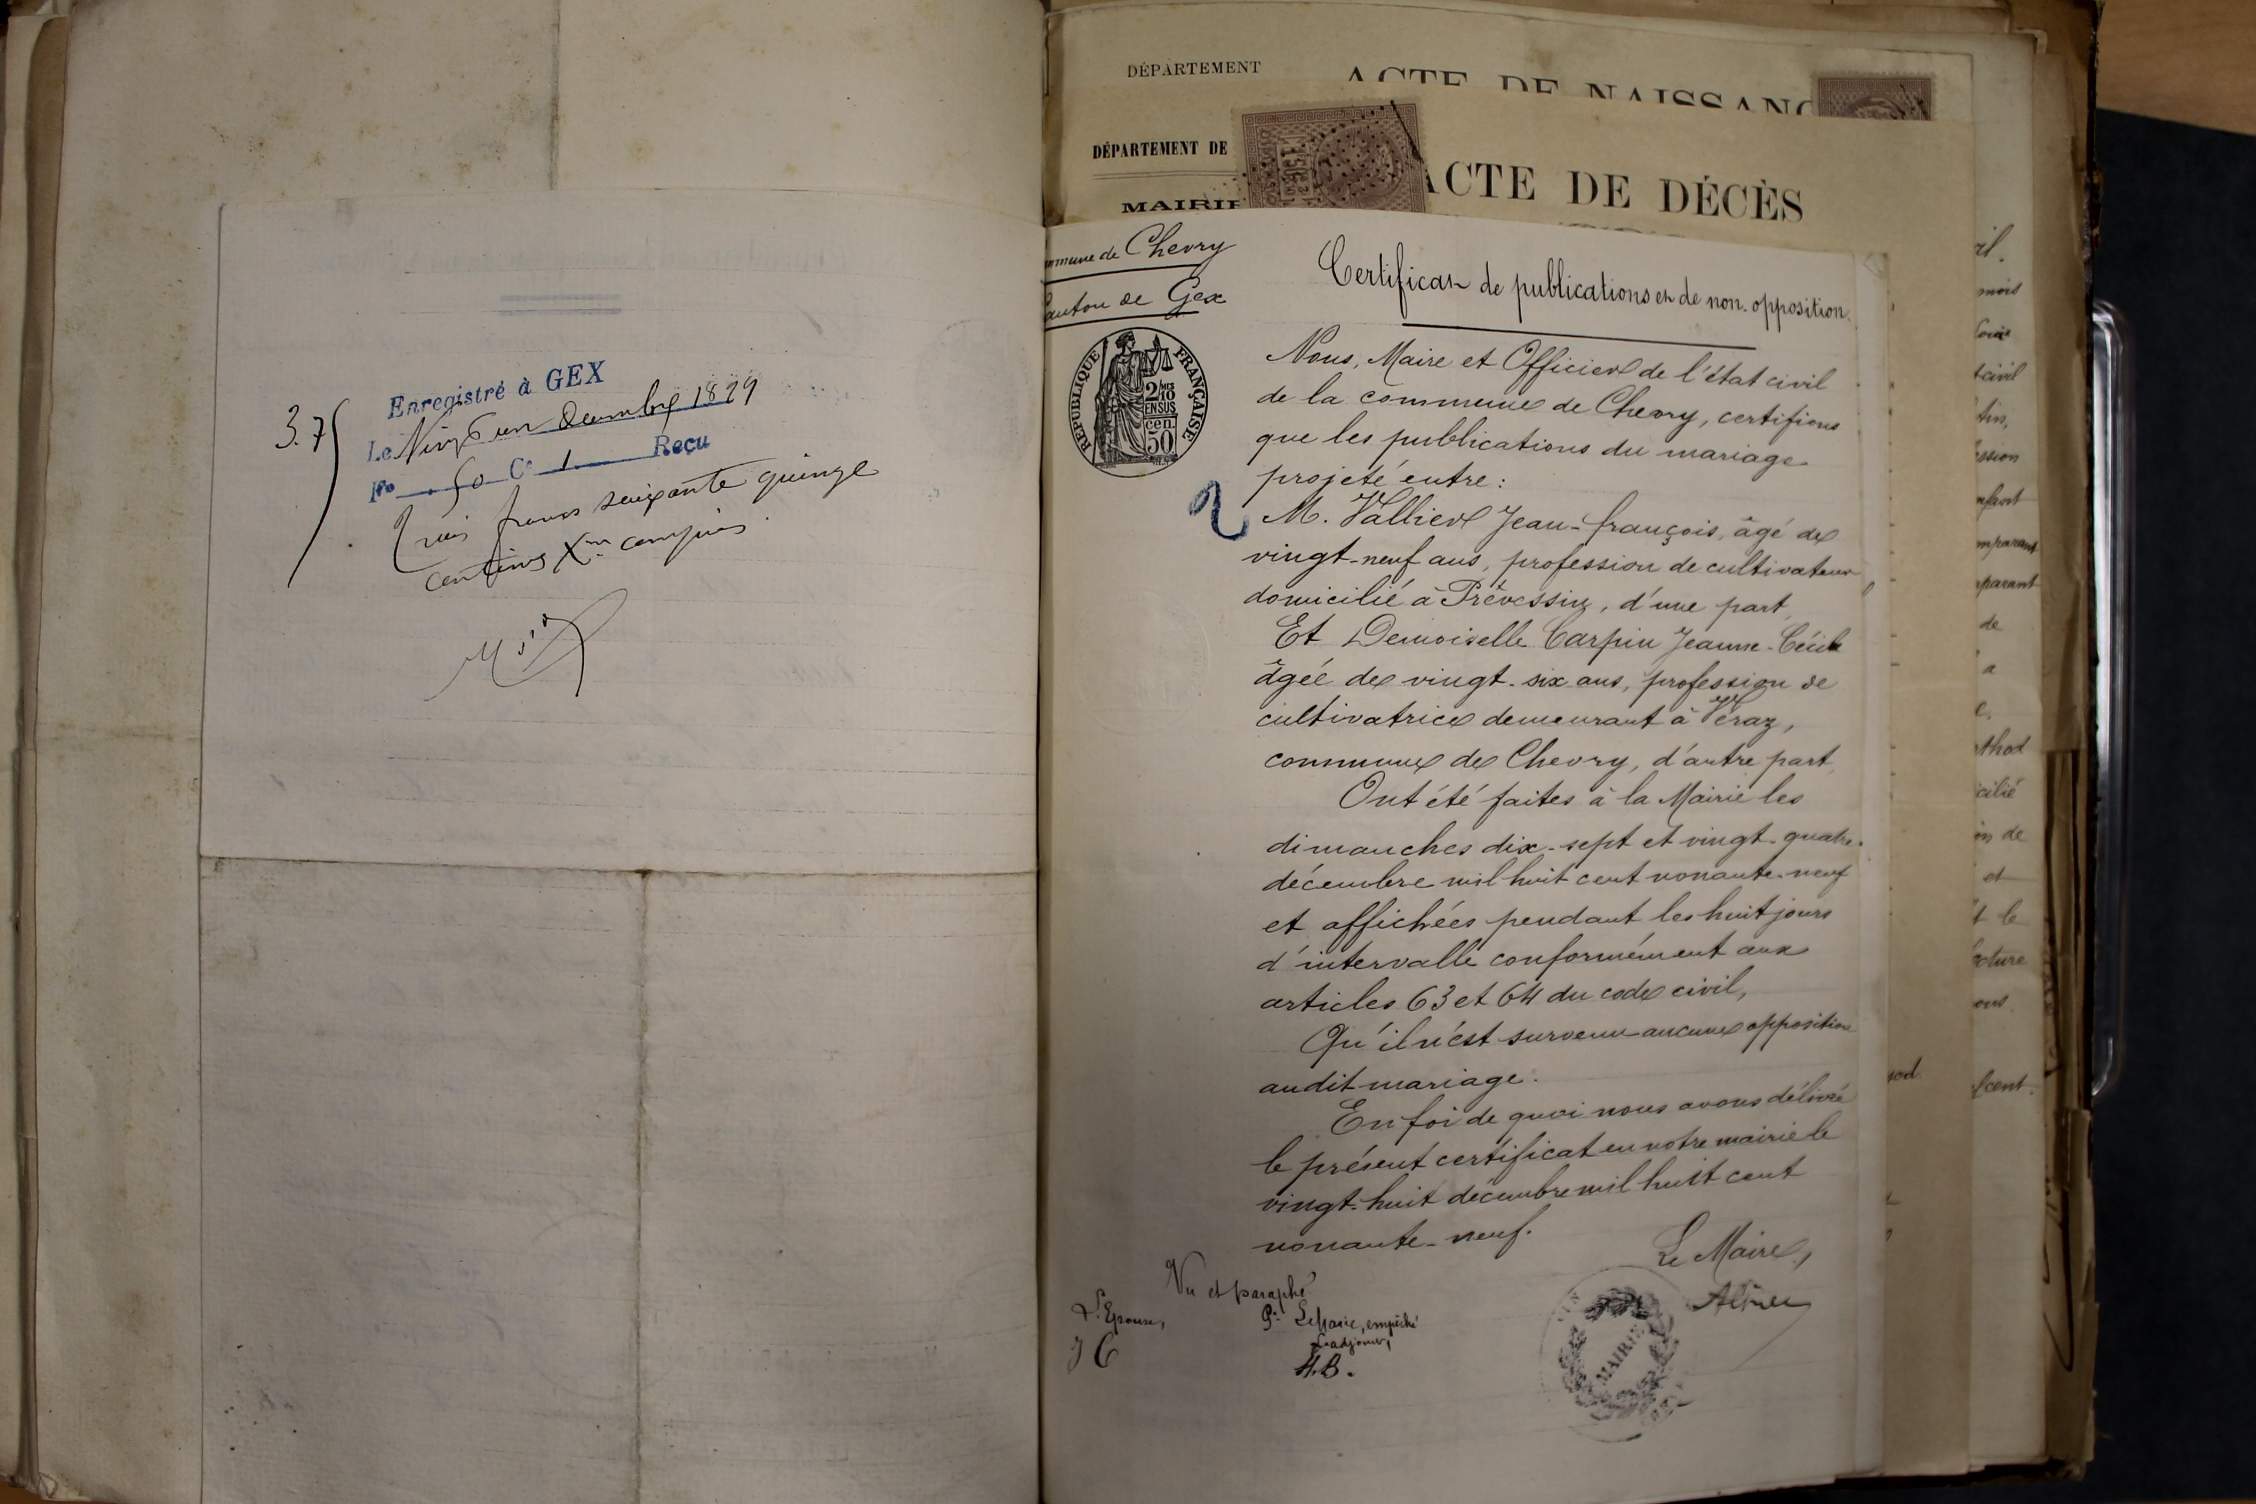 Enregistré à GEX
Le Vingt un Décembre 1899
Fo 50 Ce 1 Reçu
3.75
trois francs soixante quinze
centimes Xmes compris
DÉPARTEMENT
ACTE DE NAISSANC
DÉPARTEMENT DE
ACTE DE DÉCÈS
MAIRIE
mmune de Chevry
Canton de Gex
RÉPUBLIQUE FRANÇAISE
2/10
EN SUS
50 cen.
Certificat de publications et de non-opposition.
Nous, Maire et Officier de l'état civil
de la commune de Chevry, certifions
que les publications du mariage
projeté entre :
M. Vallier Jean-françois, âgé de
vingt-neuf ans, profession de cultivateur
domicilié à Prévessin, d'une part,
Et Demoiselle Carpin Jeanne-Cécile
âgée de vingt-six ans, profession de
cultivatrice demeurant à Véraz,
commune de Chevry, d'autre part,
Ont été faites à la Mairie les
dimanches dix-sept et vingt-quatre
décembre mil huit cent nonante-neuf
et affichées pendant les huit jours
d'intervalle conformément aux
articles 63 et 64 du code civil,
Qu'il n'est survenu aucune opposition
audit mariage.
En foi de quoi nous avons délivré
le présent certificat en notre mairie le
vingt-huit décembre mil huit cent
nonante-neuf.
Le Maire,
Vu et paraphé
L'Epouse,
J C
Pr Le Maire, empêché
L'adjoint,
H.B.
MAIRIE